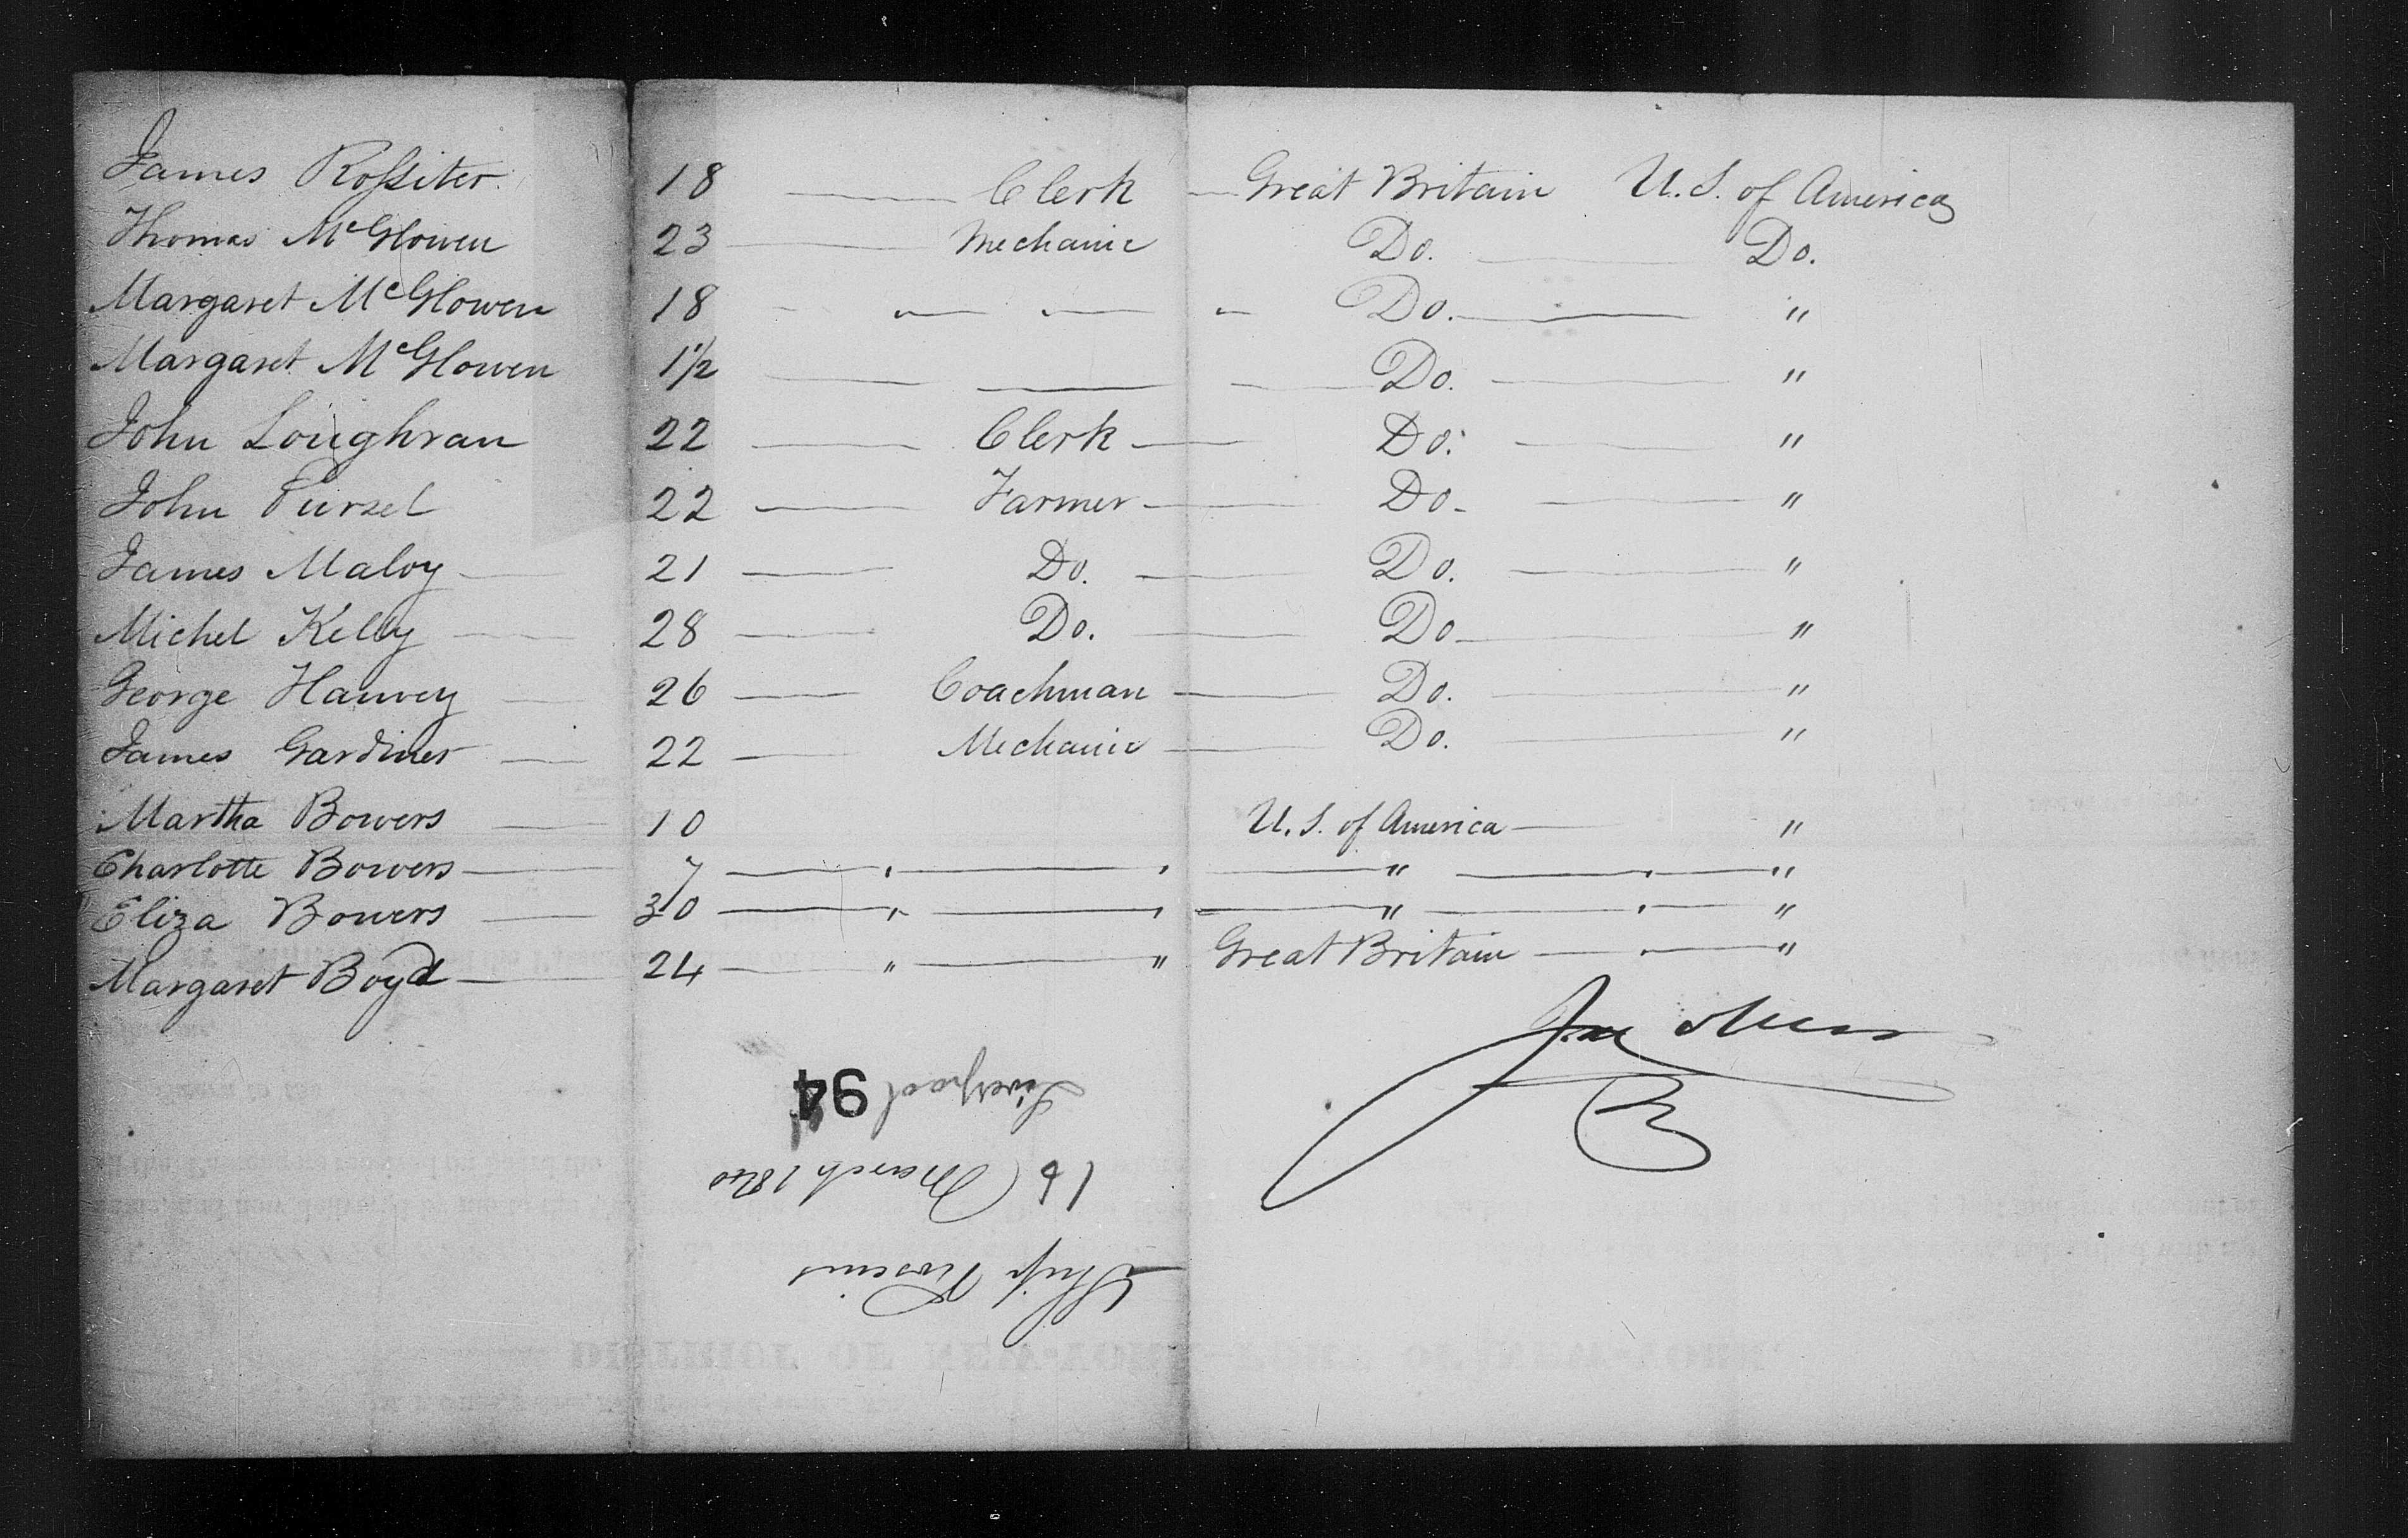 James Rossiter 18 Clerk Great Britain U.S. of America
Thomas McGlowen 23 Mechanic Do. Do.
Margaret McGlowen 18 " " " Do. "
Margaret McGlowen 1 1/2 Do. "
John Loughran 22 Clerk Do. "
John Pursel 22 Farmer Do. "
James Maloy 21 Do. Do. "
Michel Kelly 28 Do. Do "
George Hanvey 26 Coachman Do. "
James Gardiner 22 Mechanic Do. "
Martha Bowers 10 U.S. of America "
Charlotte Bowers 7 " " " " "
Eliza Bowers 30 " " " " "
Margaret Boyd 24 " " Great Britain " "
Ship Roscius
March 1840
Liverpool
94